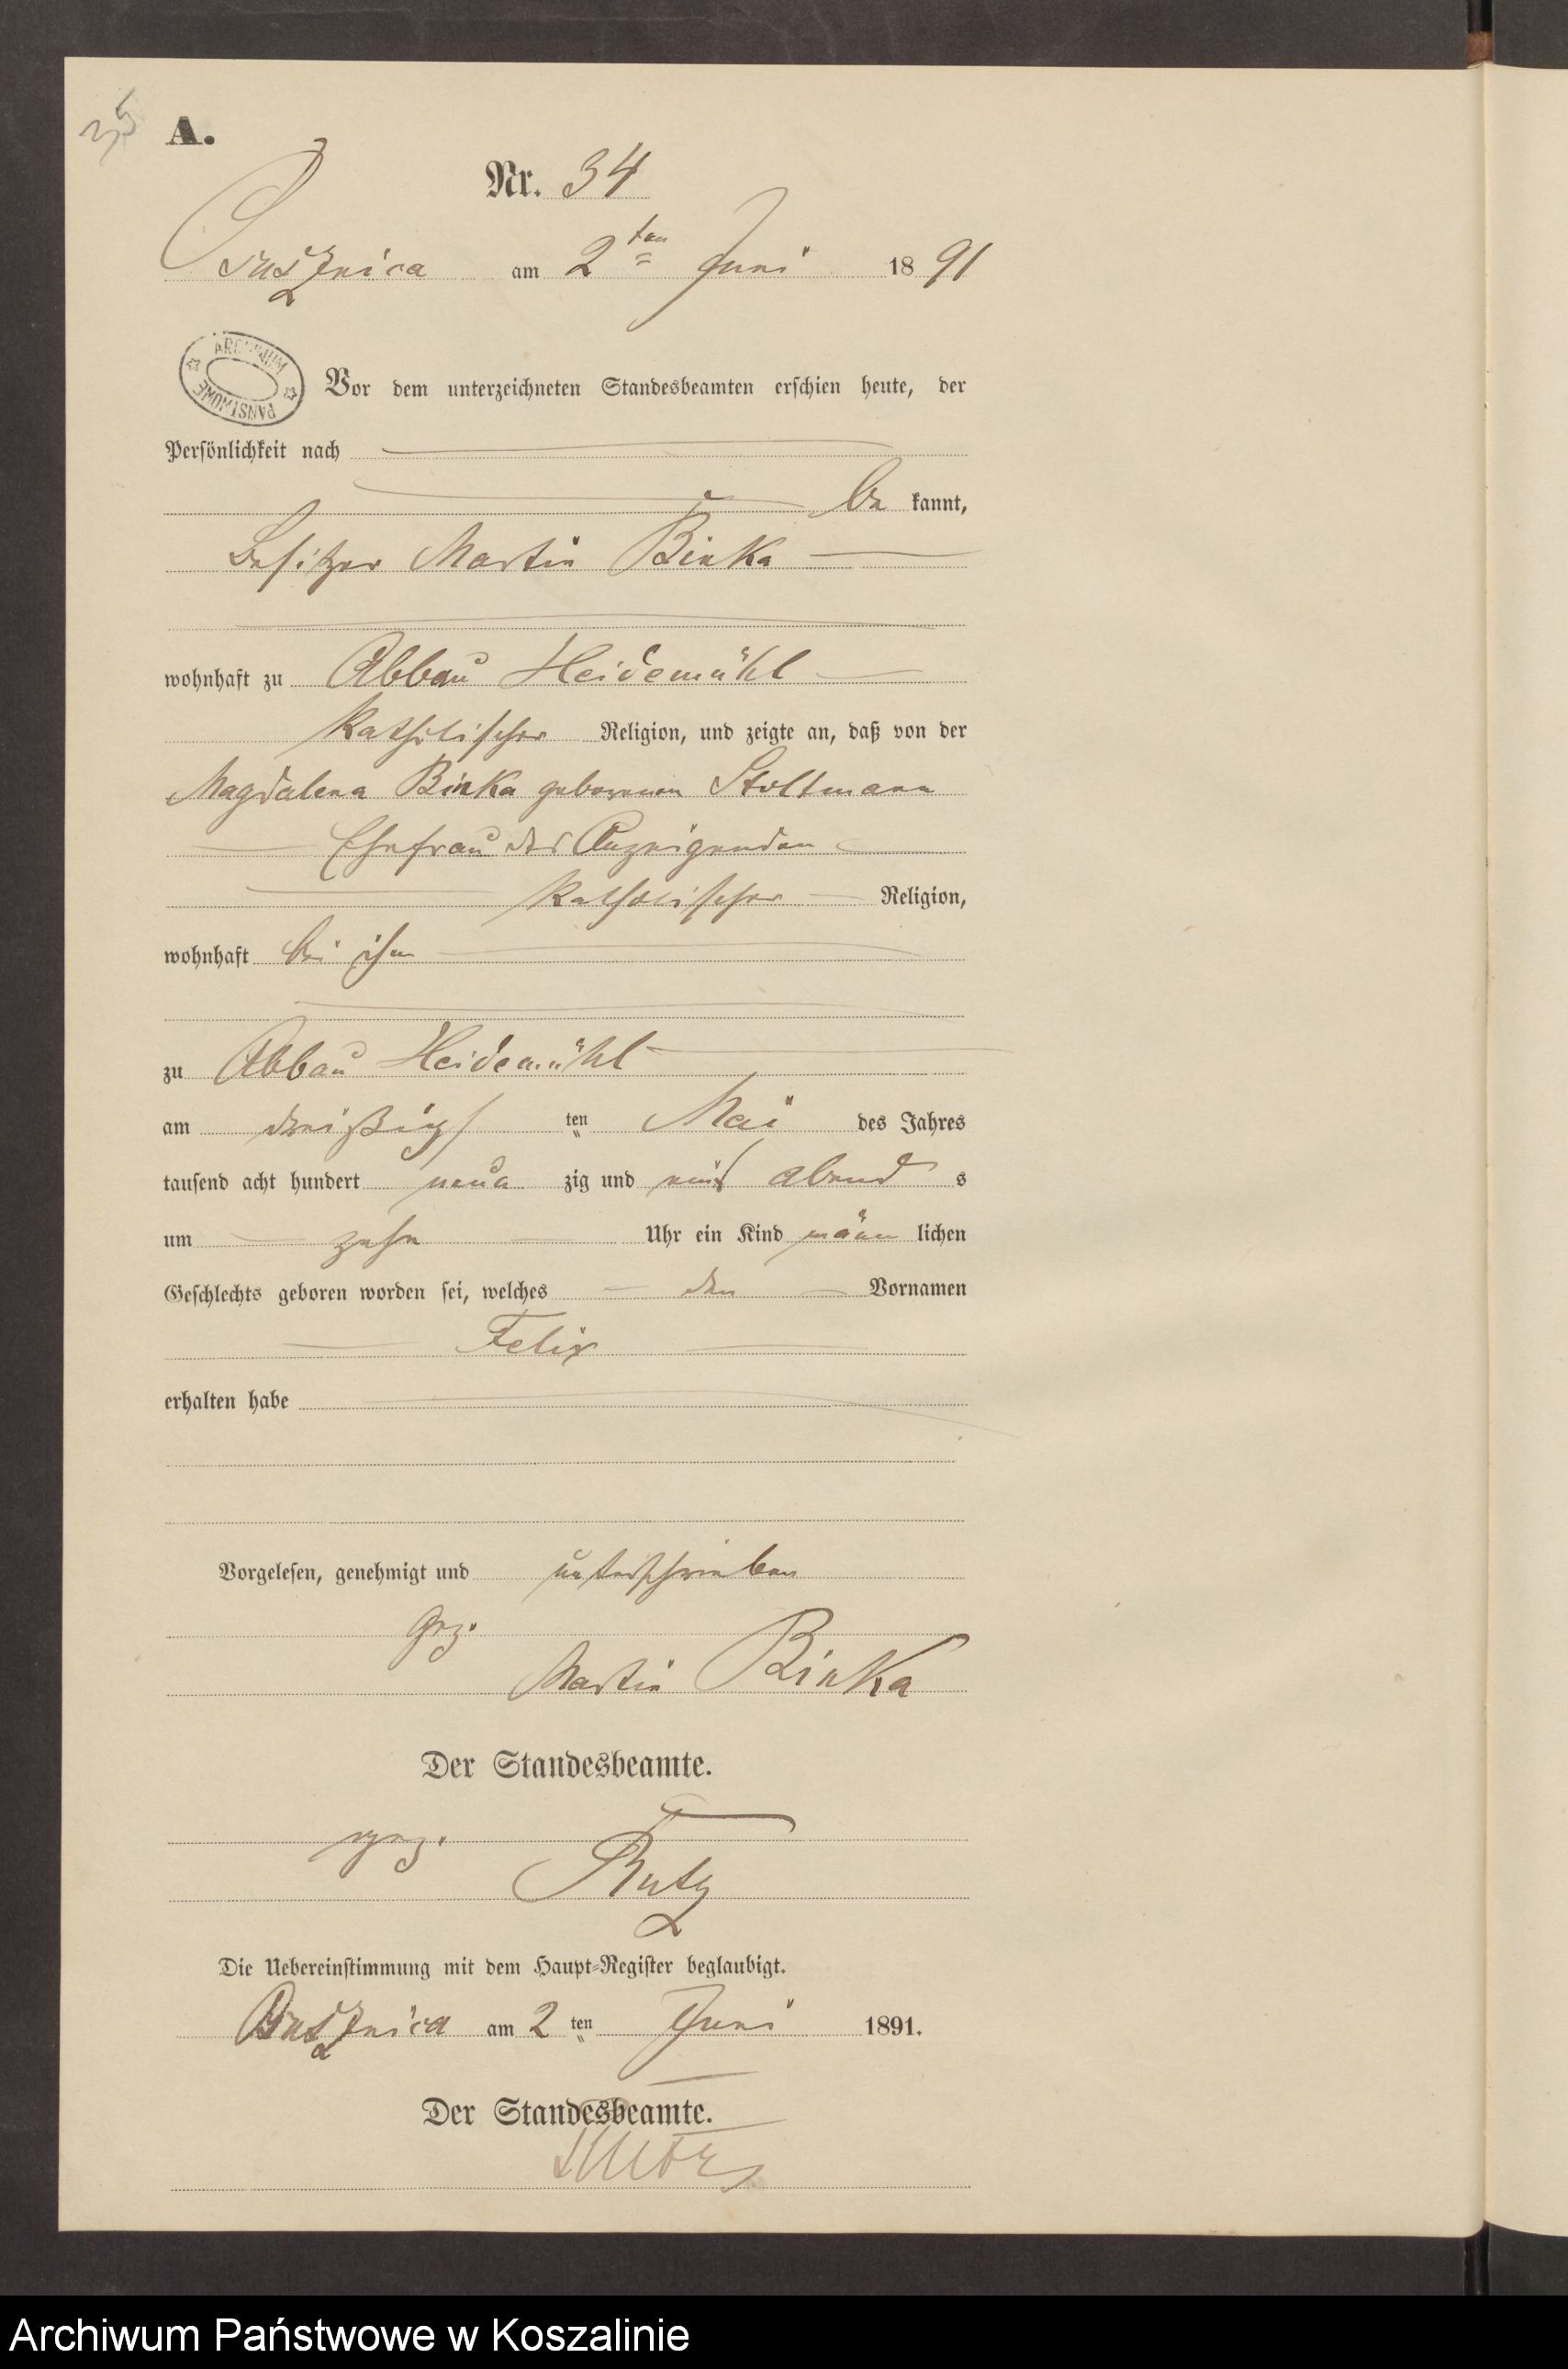 35
A.
Nr. 34
Brusznica am 2ten Juni 1891
ARCHIWUM PAŃSTWOWE
Vor dem unterzeichneten Standesbeamten erschien heute, der
Persönlichkeit nach
be kannt,
Besitzer Martin Binka
wohnhaft zu Abbau Heidemühl
katholischer Religion, und zeigte an, daß von der
Magdalena Binka geborenen Stoltmann
Ehefrau des Anzeigenden
katholischer Religion,
wohnhaft bei ihm
zu Abbau Heidemühl
am dreißigs ten Mai des Jahres
tausend acht hundert neun zig und eins abend s
um zehn Uhr ein Kind männ lichen
Geschlechts geboren worden sei, welches den Vornamen
Felix
erhalten habe
Vorgelesen, genehmigt und unterschrieben
gez.
Martin Binka
Der Standesbeamte.
gez.
Rutz
Die Uebereinstimmung mit dem Haupt-Register beglaubigt.
Brusznica am 2 ten Juni 1891.
Der Standesbeamte.
Archiwum Państwowe w Koszalinie